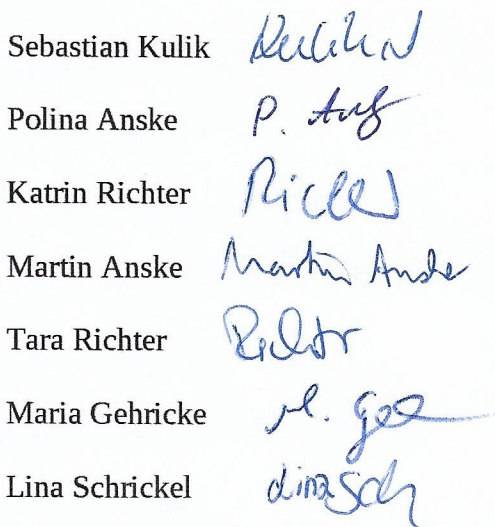 Sebastian Kulik
Polina Anske P.
Katrin Richter
Martin Anske Martin Anske
Tara Richter Richter
Maria Gehricke M.
Lina Schrickel Lina Sch